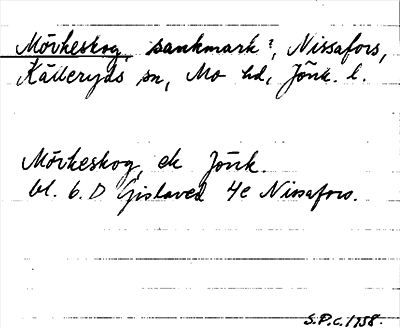 Mörkeskog, sankmark?, Nissafors,
Kålleryds sn, Mo hd, Jönk. l.
Mörkeskog, ek Jönk.
bl. 6. D Gislaved 4e Nissafors.
S.P.c. 1958.